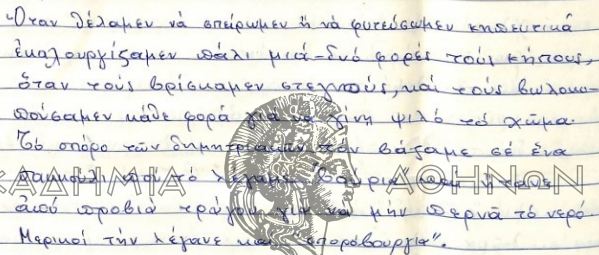 Ὅταν θέλαμεν νά σπείρωμεν ἤ νά φυτεύσωμεν κηπευτικά
ἐκαλουργίζαμεν πάλι μιά-δυό φορές τούς κήπους,
ὅταν τούς βρίσκαμεν στεγνούς, καί τούς βωλοκο-
πούσαμεν κάθε φορά γιά νά γίνη ψιλό τό χῶμα.
Τό σπόρο τῶν δημητριακῶν τόν βάζαμε σέ ἕνα
πού τό λέγαμε
ἀπό προβιά τράγου, γιά νά μήν περνᾶ τό νερό.
Μερικοί τήν λέγανε καί "σποροβουργιά".
ΑΚΑΔΗΜΙΑ ΑΘΗΝΩΝ